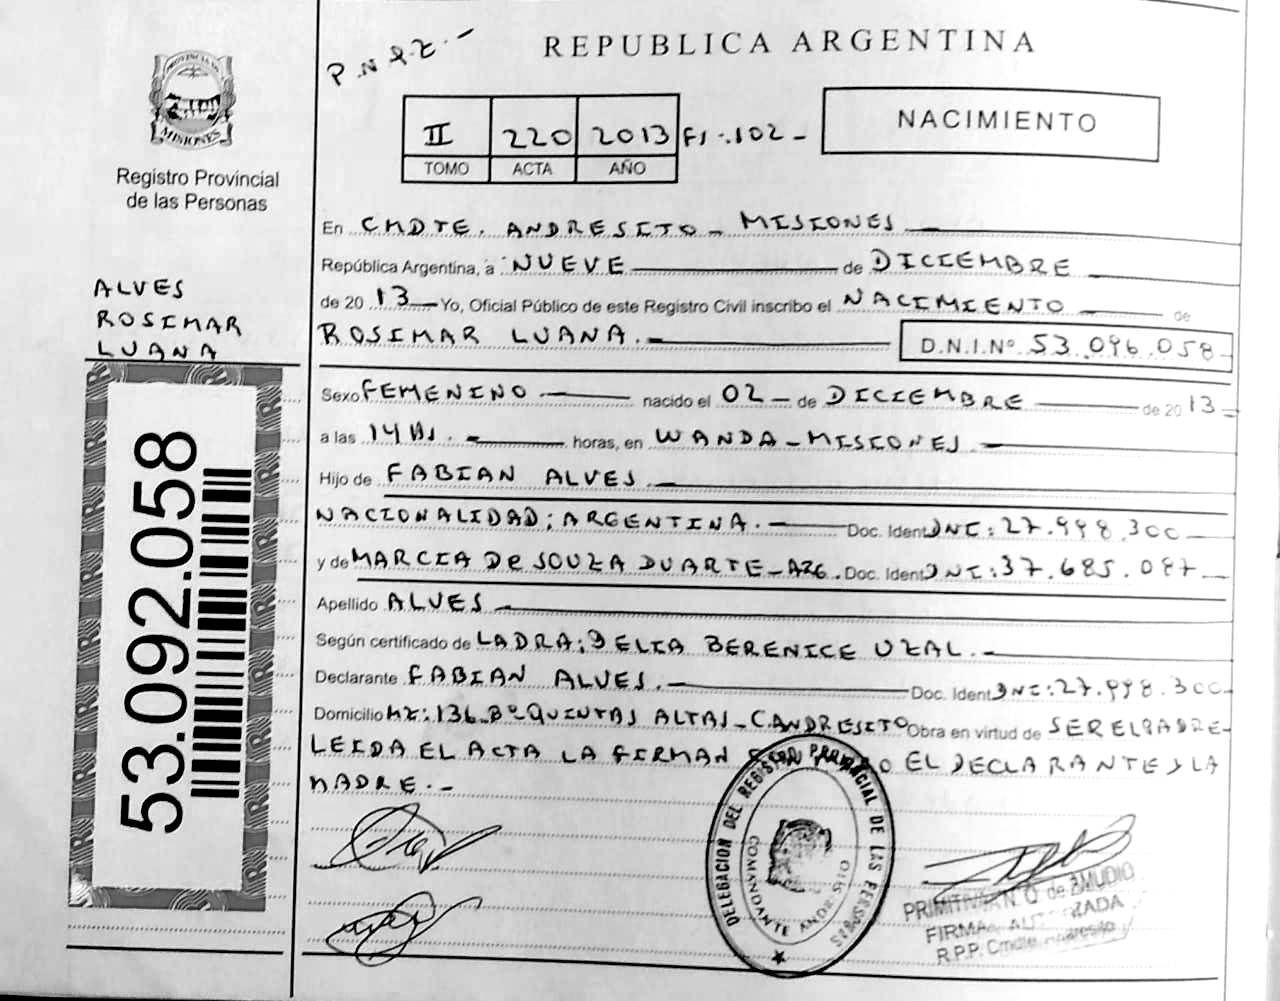 P.N.&.Z.-
REPUBLICA ARGENTINA
PROVINCIA DE
MISIONES
Registro Provincial
de las Personas
II 220 2013 Fº.102-
TOMO ACTA AÑO
NACIMIENTO
ALVES
ROSIMAR
LUANA
53.092.058
En CMDTE. ANDRESITO - MISIONES
República Argentina, a NUEVE de DICIEMBRE
de 2013 Yo, Oficial Público de este Registro Civil inscribo el NACIMIENTO de
ROSIMAR LUANA.
D.N.I.Nº 53.096.058
Sexo FEMENINO nacido el 02 - de DICIEMBRE de 2013
a las 14 Hs. horas, en WANDA - MISIONES
Hijo de FABIAN ALVES.
NACIONALIDAD: ARGENTINA. Doc. Ident DNI: 27.998.300
y de MARCIA DE SOUZA DUARTE - ARG. Doc. Ident DNI: 37.685.087
Apellido ALVES
Según certificado de LA DRA: DELIA BERENICE UZAL.
Declarante FABIAN ALVES. Doc. Ident DNI: 27.998.300
Domicilio MZ: 136 Bº QUINTAS ALTAS - C. ANDRESITO Obra en virtud de SER EL PADRE-
LEIDA EL ACTA LA FIRMAN EL DECLARANTE Y LA
MADRE.-
DELEGACION DEL REGISTRO PROVINCIAL DE LAS PERSONAS
COMANDANTE ANDRESITO
de ZMUDIO
FIRMA AUTORIZADA
R.P.P. Cmdte. Andresito